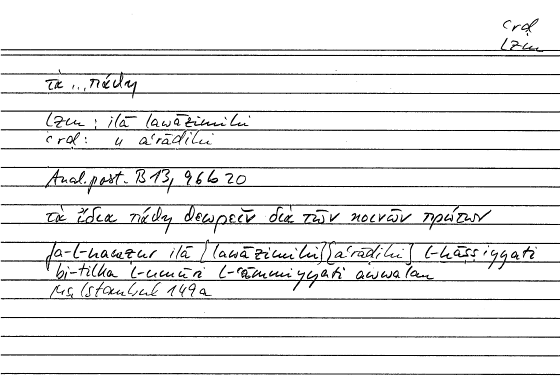 ʿrḍ
lzm
τὰ ... πάθη
lzm : ilā lawāzimihi
ʿrḍ : " aʿrāḍihi
Anal. post. B 13, 96 b 20
τὰ ἴδια πάθη θεωρεῖν διὰ τῶν κοινῶν πρώτων
fa-l-naẓar ilā [lawāzimihi] [aʿrāḍihi] l-ḫāṣṣiyyati
bi-tilka l-umūri l-ʿāmmiyyati awwalan
Ms Istanbul 149a